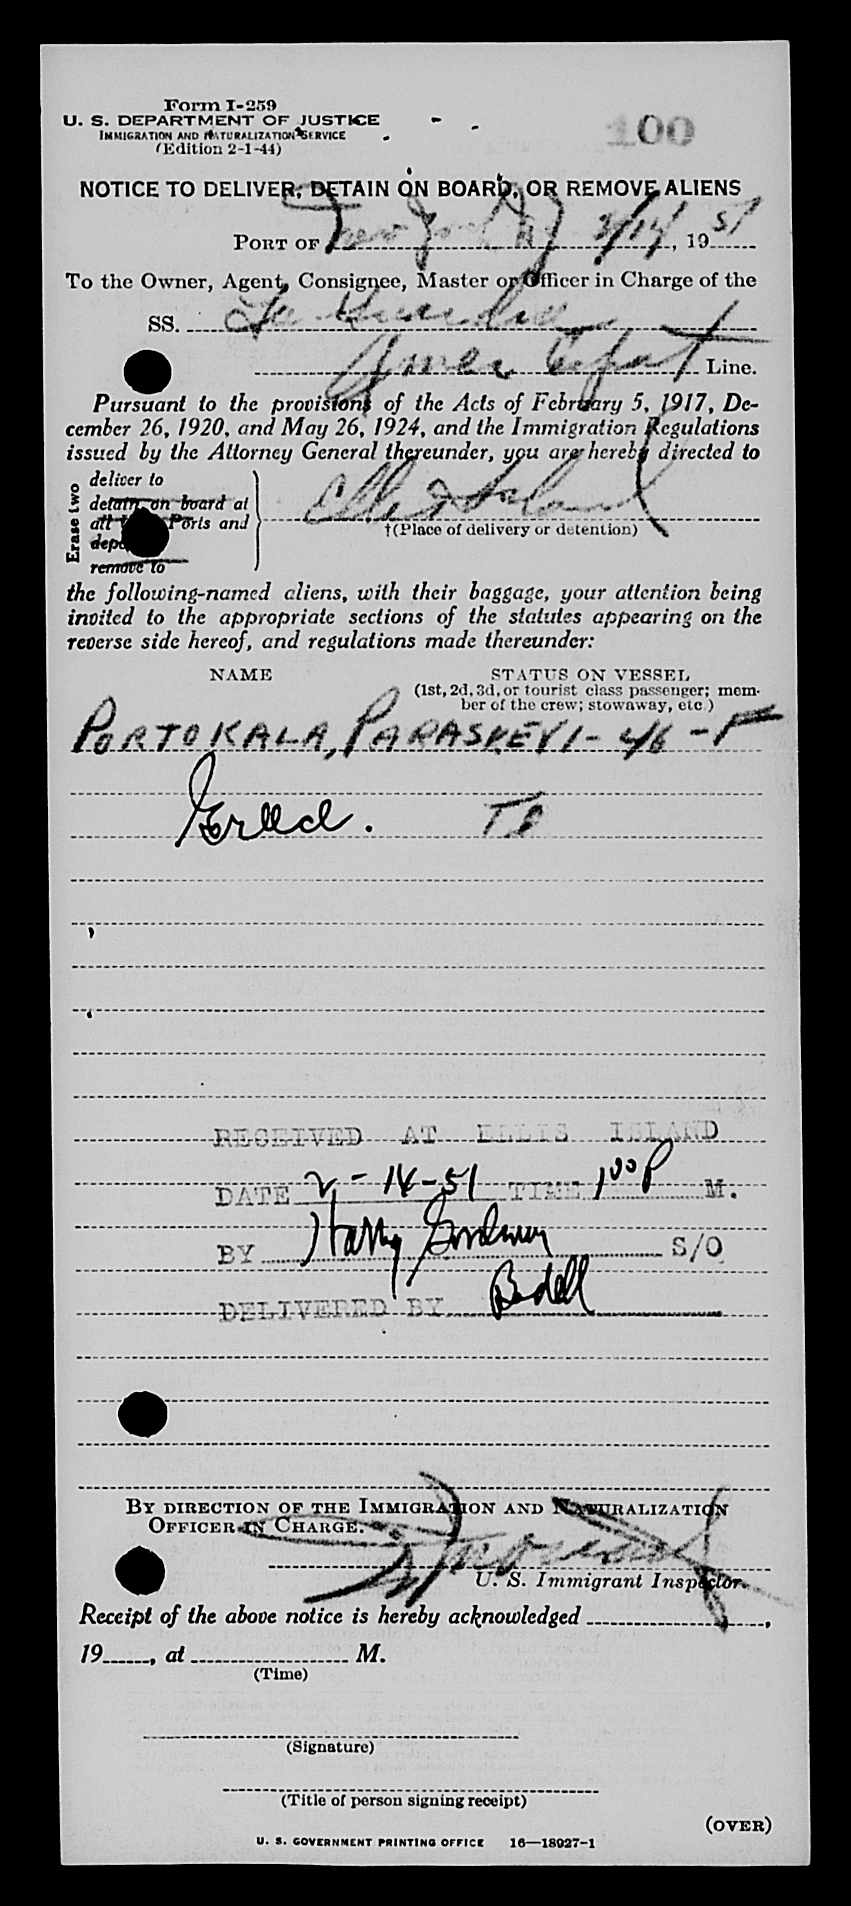 Form I-259
U. S. DEPARTMENT OF JUSTICE
IMMIGRATION AND NATURALIZATION SERVICE
(Edition 2-1-44)
100
NOTICE TO DELIVER, DETAIN ON BOARD, OR REMOVE ALIENS
PORT OF New York NY 2/14, 1951
To the Owner, Agent, Consignee, Master or Officer in Charge of the
SS. La Guardia
Amer Export Line.
Pursuant to the provisions of the Acts of February 5, 1917, De-
cember 26, 1920, and May 26, 1924, and the Immigration Regulations
issued by the Attorney General thereunder, you are hereby directed to
Erase two
deliver to
detain on board at
all Ports and
remove to
Ellis Island
†(Place of delivery or detention)
the following-named aliens, with their baggage, your attention being
invited to the appropriate sections of the statutes appearing on the
reverse side hereof, and regulations made thereunder:
NAME STATUS ON VESSEL
(1st, 2d, 3d, or tourist class passenger; mem-
ber of the crew; stowaway, etc.)
PORTOKALA, PARASKEVI - 4/6 - F
RECEIVED AT ELLIS ISLAND
DATE 2-14-51 TIME 1 00 P M.
BY Harry S/O
DELIVERED BY Bedell
BY DIRECTION OF THE IMMIGRATION AND NATURALIZATION
OFFICER IN CHARGE.
U. S. Immigrant Inspector.
Receipt of the above notice is hereby acknowledged ,
19 , at M.
(Time)
(Signature)
(Title of person signing receipt)
(OVER)
U. S. GOVERNMENT PRINTING OFFICE 16—18027-1